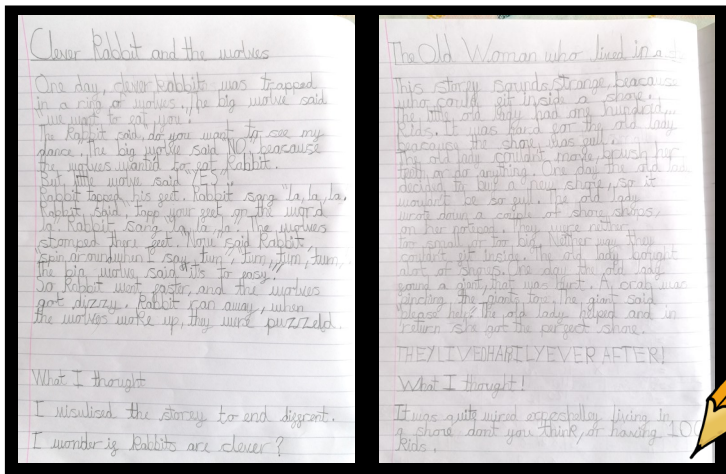 Clever Rabbit and the wolves
One day, clever Rabbit was trapped
in a ring of wolves. The big wolve said
"we want to eat you".
The Rabbit said, do you want to see my
dance. The big wolve said "NO", beacause
the wolves wanted to eat Rabbit.
But, little wolve said "YES".
Rabbit tapped his feet. Rabbit sang "la, la, la.
Rabbit, said, tapp your feet on the word
la. Rabbit sang "la, la, la". The wolves
stomped there feet. "Now" said Rabbit,
"spin around when I say, tum, tum, tum, tum,"
the big wolve said "it's to easy.
So Rabbit went faster, and the wolves
got dizzy. Rabbit ran away, when
the wolves woke up, they were puzzeld.
What I thought
I visulised the storey to end different.
I wonder if Rabbits are clever?
The Old Woman who lived in a
This storey sounds strange, beacause
who could fit inside a shoe.
The little old lady had one hundred
kids. It was hard for the old lady
beacause the shoe was full.
The old lady couldn't move, brush her
teeth, or do anything. One day the old lady
decided to buy a new shoe, so it
wouldn't be so full. The old lady
wrote down a couple of shoe shops,
on her notepad. They were nether
too small or too big. Nether way they
couldn't fit inside. The old lady bought
alot of shoes. One day the old lady
found a giant, that was hurt. A crab was
pinching the giants toe. The giant said
"please help". The old lady helped and in
return she got the perfect shoe.
THEY LIVED HAPILY EVER AFTER!
What I thought!
It was quite wired espeshelley living in
a shoe dont you think, or having 100
kids.